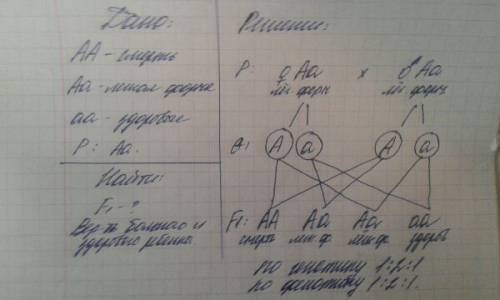 Дано:
АА - смерть
Аа - легкая форма
аа - здоровые
Р: Аа.
Найти:
F1 - ?
Вер-ть больного и
здорового ребенка
Решение:
Р: ♀ Аа х ♂ Аа
лёг форм лёг форм
А а А а
F1: АА Аа Аа аа
смерть лег ф лег ф. здоров
по генотипу 1:2:1
по фенотипу 1:2:1.